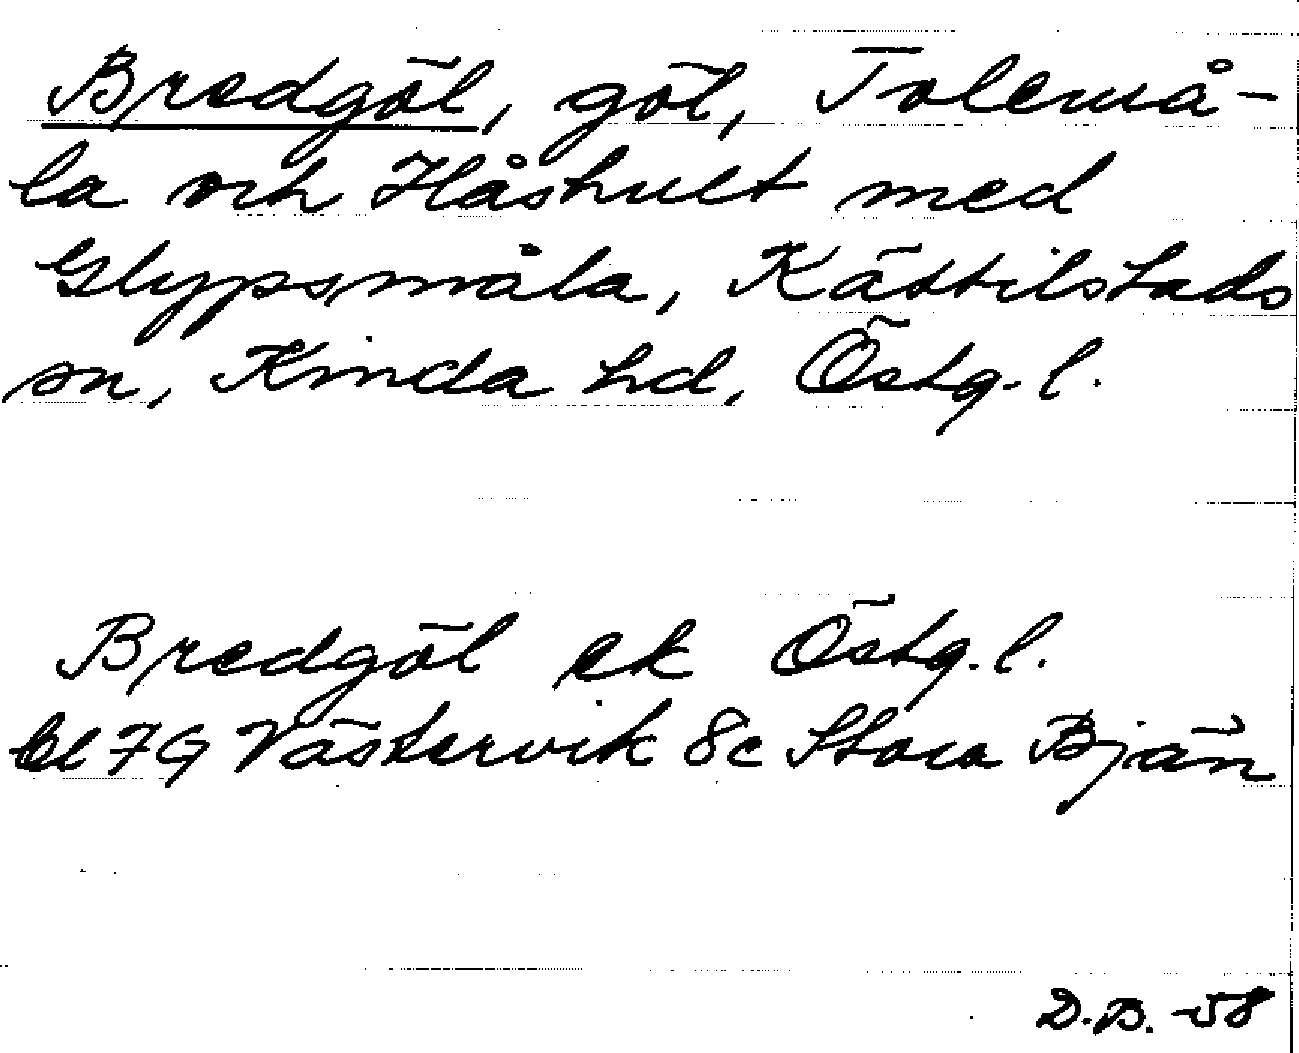 Bredgöl, göl, Tolemå-
la och Håshult med
Glypsmåla, Kättilstads
sn, Kinda hd, Östg. l.
Bredgöl ek Östg. l.
bl 7G Västervik 8c Stora Bjän
D.B. -58